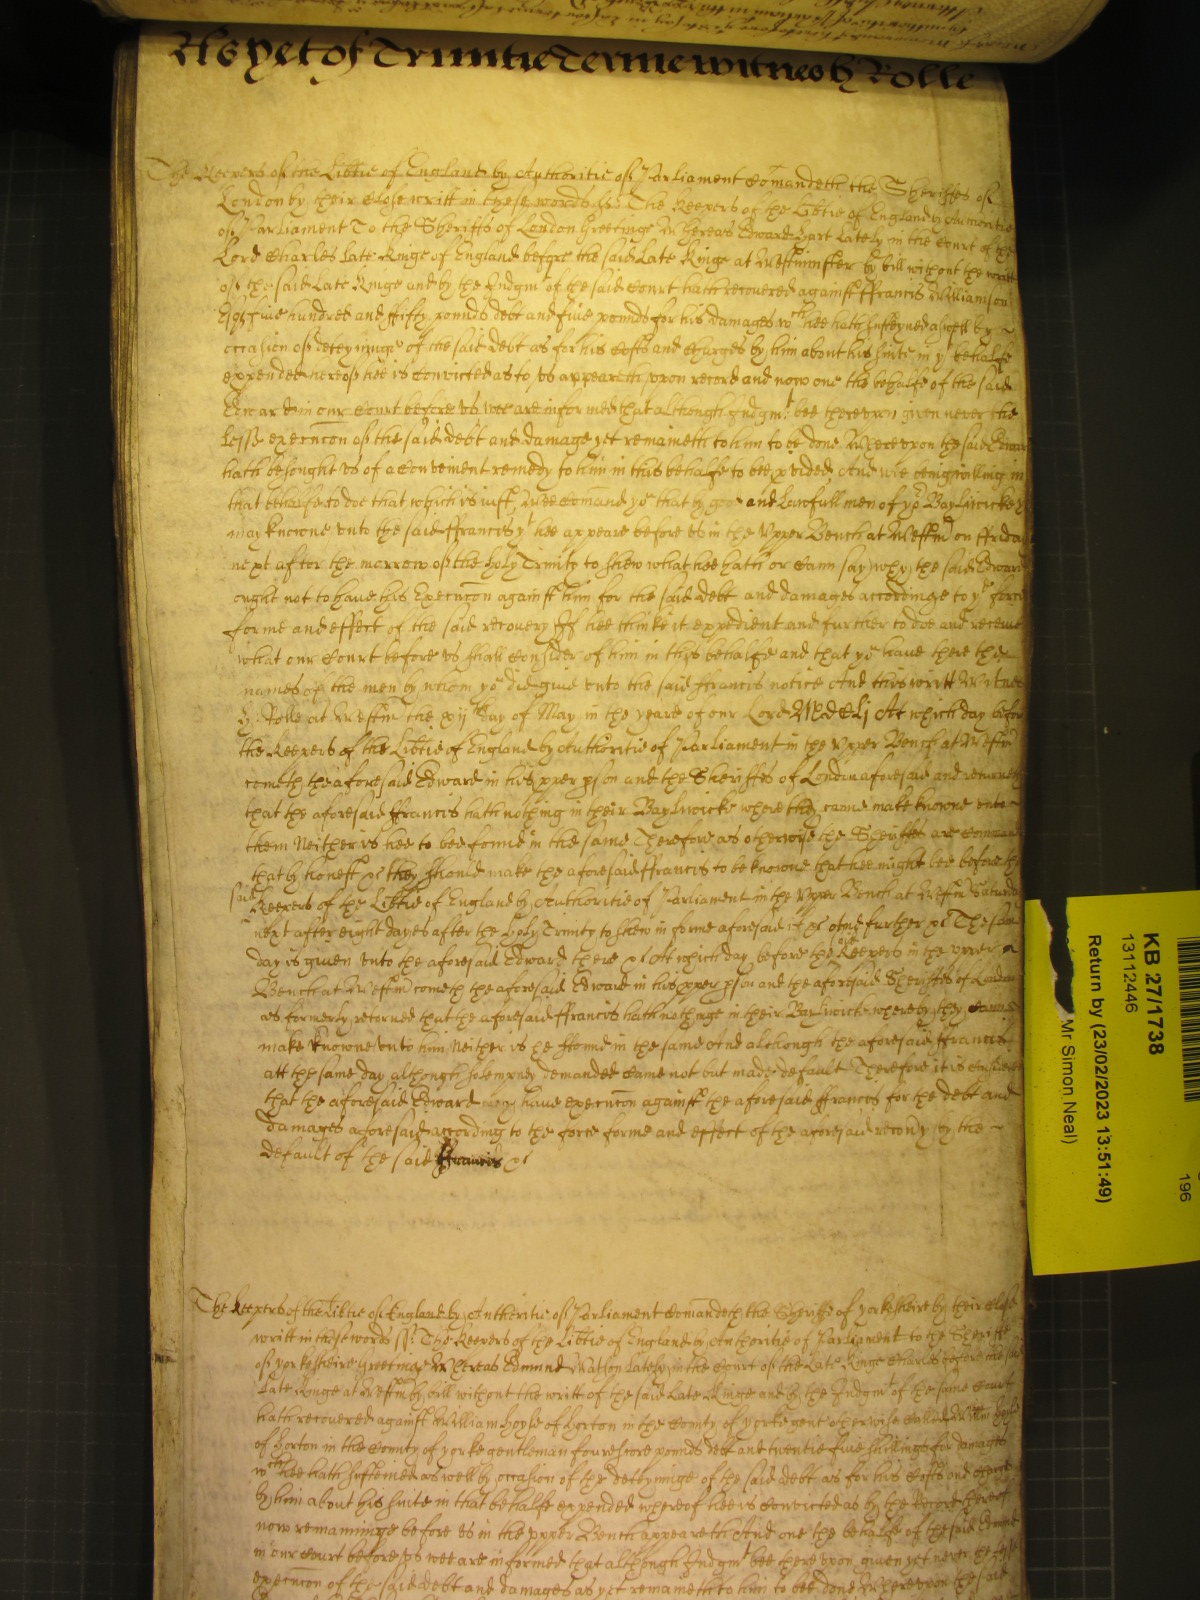 As yet of Trinitie Terme witnes H Rolle
The Keepers of the Lib̃tie of England by Authoritie of Parliament Com̃andeth the Sheriffes of
London by their Close writt in these words ss: The Keepers of the Lib̃tie of England by Authoritie
of Parliament To the Sheriffs of London Greetinge Whereas Edward Hart Lately in the Court of the
Lord Charles late Kinge of England before the said Late Kinge at Westminster by bill without the writt
of the said Late Kinge and by the Judgmt of the said Court hath recovered against ffrancis Williamson
Esqr five hundred and ffifty pounds debt and five pounds for his damages wch hee hath susteyned aswell by
occasion of deteyninge of the said debt as for his Costs and Charges by him about his suite in yt behalfe
expended whereof hee is Convicted as to us appeareth upon record and now one the behalfe of the said
Edward in our Court before us wee are informed that although Judgmt bee thereupon given never the
lesse execuc̃on of the said debt and damage yet remaineth to him to be done Whereupon the said Edward
hath besought us of a Convenient remedy to him in this behalfe to bee p̱vided And wee being willing in
that behalfe to doe that which is iust Wee Com̃and yo that by good and Lawfull men of yor Baylwicke yo
may knowne unto the said ffrancis yt hee appeare before us in the Upper Bench at Westm̃ on ffriday
next after the morrow of the holy Trinity to shew what hee hath or Cann say why the said Edward
ought not to have his Execuc̃on against him for the said debt and damages accordinge to ye force
forme and effect of the said recovery If hee thinke it expedient and further to doe and receive
what our Court before us shall Consider of him in this behalfe and that yo have there the
names of the men by whom yo did give unto the said ffrancis notice And this writt Witnes
H: Rolle at Westm̃ the xijth day of May in the yeare of our Lord MDCLj At which day before
the Keepers of the Lib̃tie of England by Authoritie of Parliament in the Upper Bench at Westm̃
cometh the aforesaid Edward in his p̱per p̱son and the Sheriffes of London aforesaid and returneth
that the aforesaid ffrancis hath nothing in their Baylwicke where they came make knowne unto
them Neither is hee to bee found in the same Therefore as otherwise the Sheriffes are Com̃anded
that by honest &c they should make the aforesaid ffrancis to be knowne that hee might bee before the
said Keepers of the Lib̃tie of England by Authoritie of Parliament in the Upper Bench at Westm̃ Saturday
next after eight dayes after the holy Trinity to shew in forme aforesaid if &c and further &c The same
day is given unto the aforesaid Edward there &c At which day before the Keepers in the upper
Bench at Westm̃ cometh the aforesaid Edward in his p̱per p̱son and the aforesaid Sheriffes of London
as formerly returned that the aforesaid ffrancis hath nothinge in their Baylwicke whereby they Cann
make knowne unto him Neither is he ffound in the same And although the aforesaid ffrancis
att the same day although solempnly demanded Came not but made default Therefore it is considered
that the aforesaid Edward may have execuc̃on against the aforesaid ffrancis for the debt and
damages aforesaid according to the force forme and effect of the aforesaid recov̾y by the
default of the said ffrancis &c
The Keepers of the Lib̃tie of England by Authoritie of Parliament Com̃andeth the Sheriffe of yorkesheire by their Close
writt in these words ss: The Keepers of the Lib̃tie of England by Authoritie of Parliament to the Sheriffe
of yorkesheire Greetinge Whereas Edmund Watson Lately in the Court of the Late Kinge Charles before the said
Late Kinge at Westm̃ by bill without the writt of the said Late Kinge and by the Judgmt of the same Court
hath recovered against William Hoyle of Horton in the County of yorke gent otherwise Called Willm̃ Hoyle
of Horton in the County of yorke gentleman fourescore pounds debt and twentie five shillings for damages
wch hee hath susteined as well by occasion of the deteyninge of the said debt as for his Costs and
by him about his suite in that behalfe expended whereof hee is Convicted as by the Record thereof
now remaininge before us in the Upper Bench appeareth And one the behalfe of the said Edmund
in our Court before us wee are informed that although Judgmt bee thereupon given yet
execuc̃on of the said debt and damages as yet remaineth to him to bee done Whereupon the said
KB 27/1738
13112446
Return by (23/02/2023 13:51:49)
Mr Simon Neal)
196